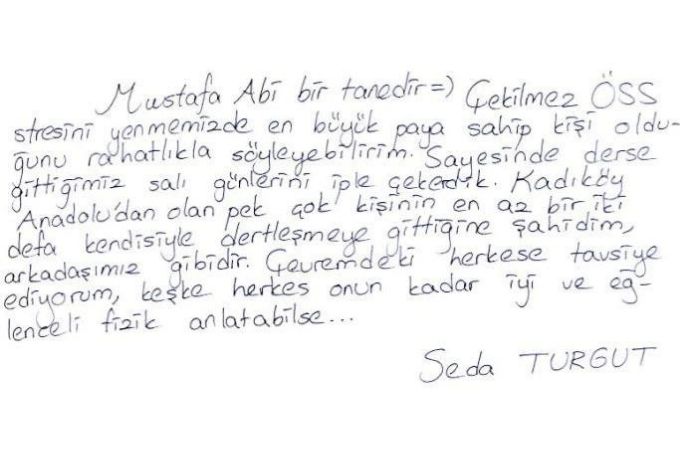 Mustafa Abi bir tanedir=) Çekilmez ÖSS
stresini yenmemizde en büyük paya sahip kişi oldu-
ğunu rahatlıkla söyleyebilirim. Sayesinde derse
gittiğimiz salı günlerini iple çekerdik. Kadıköy
Anadolu'dan olan pek çok kişinin en az bir iki
defa kendisiyle dertleşmeye gittiğine şahidim,
arkadaşımız gibidir. Çevremdeki herkese tavsiye
ediyorum, keşke herkes onun kadar iyi ve eğ-
lenceli fizik anlatabilse...
Seda TURGUT